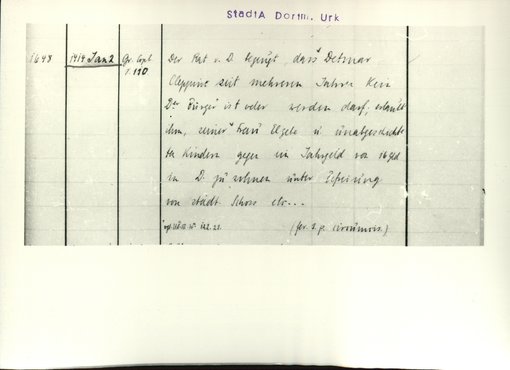 StadtA Dortm. Urk
1648 1414 Jan 2 Gr. Copl. Der Rat v. D. bezeugt, dass Detmar
f. 110 Cleppinc seit mehreren Jahren kein
Der Bürger ist oder werden darf, erlaubt
ihm, seiner Frau Elzele u. unabgeschichte
ten Kindern gegen ein Jahrgeld von 16 Gld
in D. zu wohnen unter Befreiung
von städt. Schoss etc...
(fer. 2. p. circumcis.)